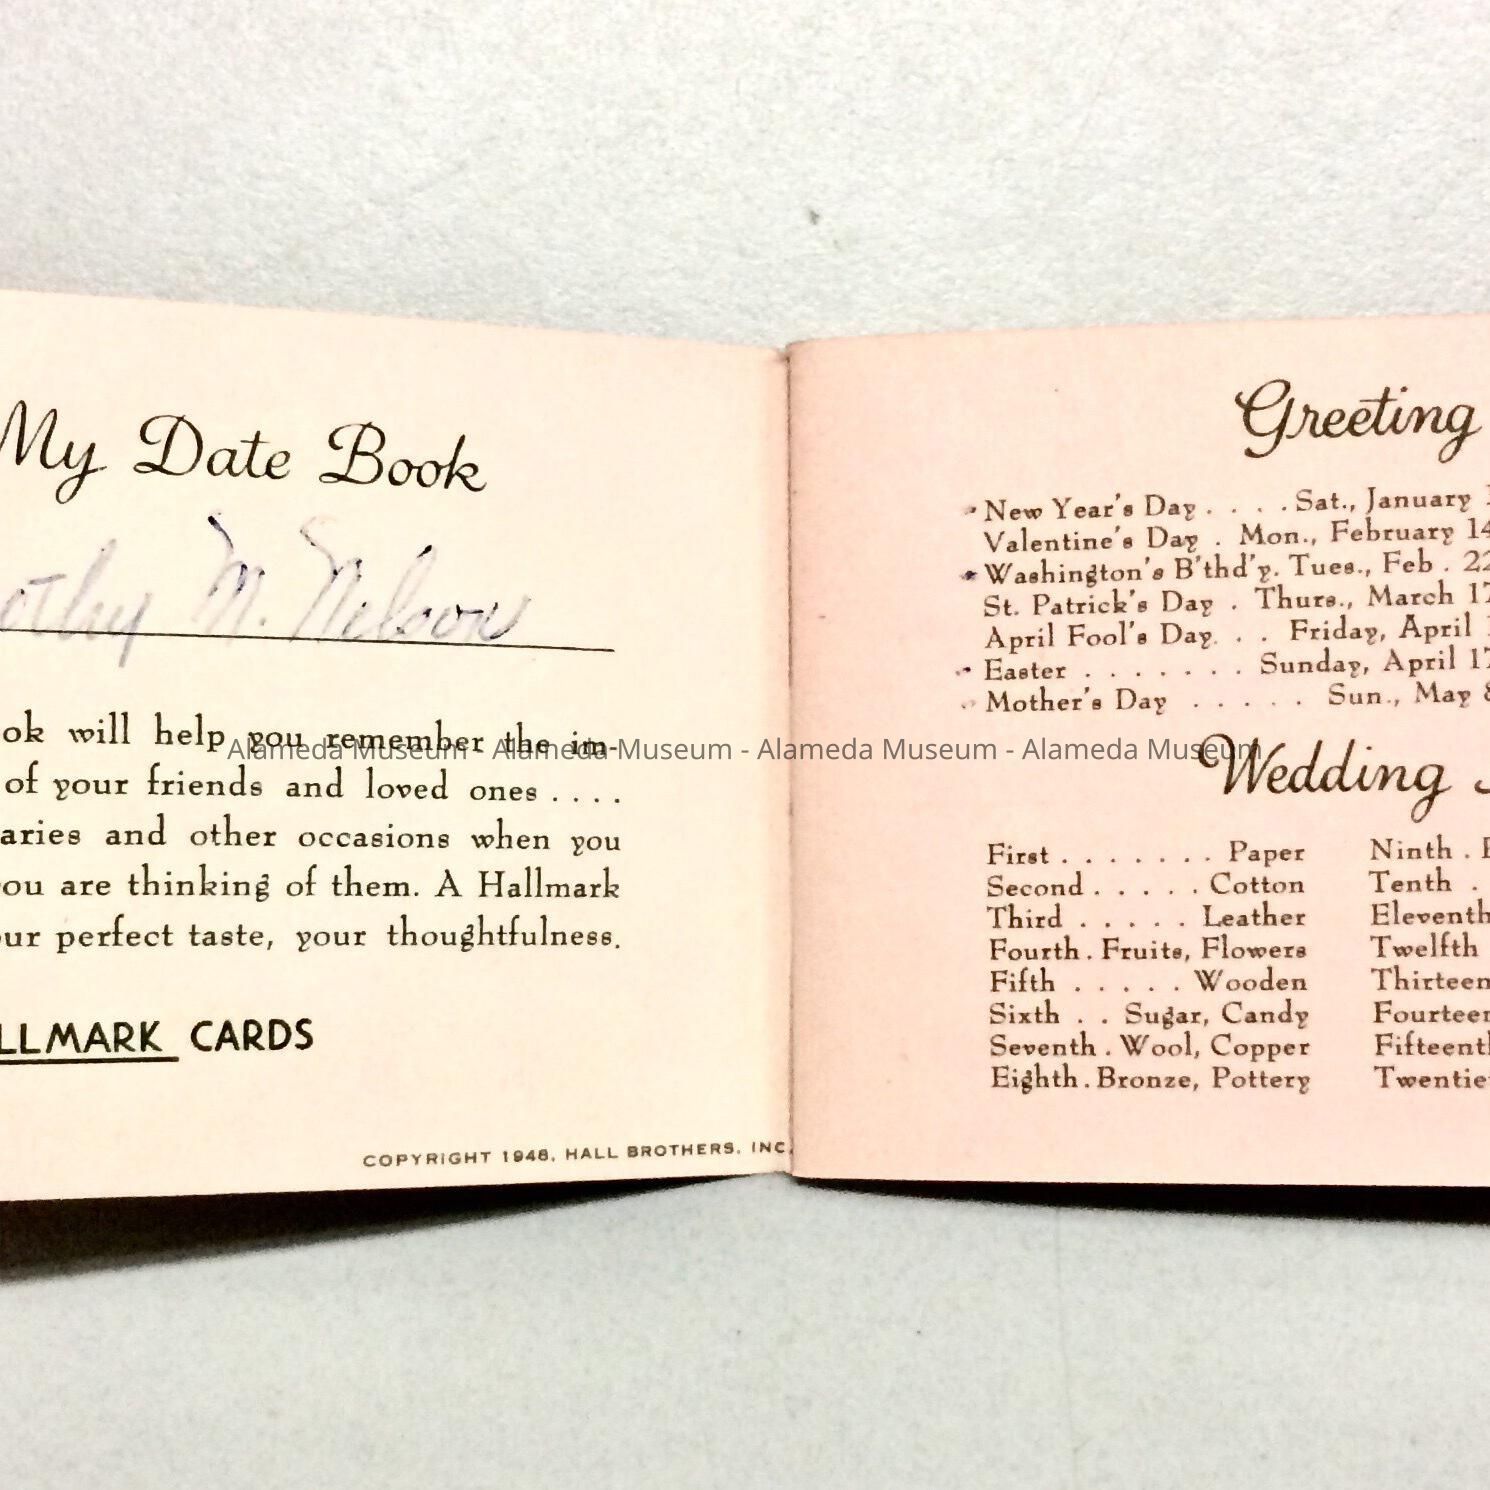 My Date Book
othy M. Nelson
ok will help you remember the im-
of your friends and loved ones . . . .
aries and other occasions when you
ou are thinking of them. A Hallmark
ur perfect taste, your thoughtfulness.
LLMARK CARDS
COPYRIGHT 1948, HALL BROTHERS, INC.
Greeting
New Year's Day . . . . Sat., January 1
Valentine's Day . Mon., February 14
Washington's B'thd'y. Tues., Feb . 22
St. Patrick's Day . Thurs., March 17
April Fool's Day. . . Friday, April 1
Easter . . . . . . . Sunday, April 17
Mother's Day . . . . . Sun., May 8
Wedding
First . . . . . . . Paper
Second . . . . . Cotton
Third . . . . . Leather
Fourth . Fruits, Flowers
Fifth . . . . . Wooden
Sixth . . Sugar, Candy
Seventh . Wool, Copper
Eighth . Bronze, Pottery
Ninth .
Tenth .
Eleventh
Twelfth
Thirteen
Fourteen
Fifteenth
Twentie
Alameda Museum - Alameda Museum - Alameda Museum - Alameda Museum